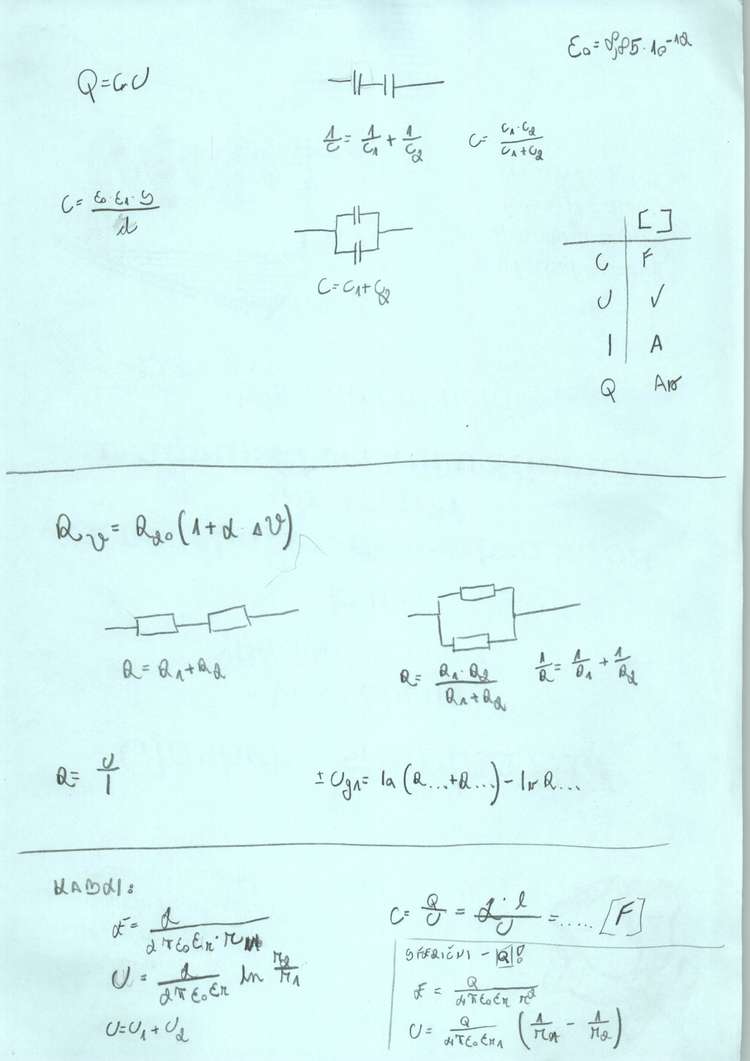 ε₀ = 8,85 · 10⁻¹²
Q = C · U
1/C = 1/C₁ + 1/C₂
C = C₁ · C₂ / C₁ + C₂
C = ε₀ · εᵣ · S / d
C = C₁ + C₂
[ ]
C F
U V
I A
Q As
R𝜗 = R₂₀ (1 + α · Δ𝜗)
R = R₁ + R₂
R = R₁ · R₂ / R₁ + R₂
1/R = 1/R₁ + 1/R₂
R = U / I
± Ug₁ = Ia (R... + R...) - Ib R...
KABLI:
E = λ / 2πε₀εᵣ · r
C = Q/U = λ · l / U = ..... [F]
U = λ / 2πε₀εᵣ ln r₂/r₁
U = U₁ + U₂
SFERIČNI - Q!
E = Q / 4πε₀εᵣ r²
U = Q / 4πε₀εᵣ₁ (1/r₁ - 1/r₂)